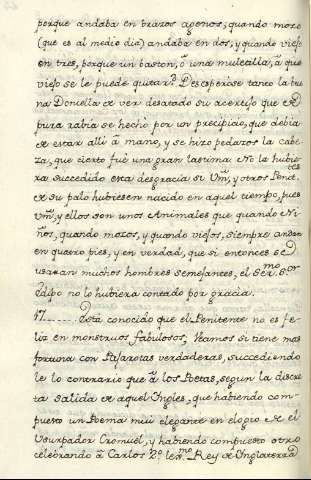 porque andaba en brazos agenos; quando mozo
(que es al medio dia) andaba en dos, y quando viejo
en tres, porque un baston, ò una muletilla, â que
viejo se le puede quitar? Desesperòse tanto la bue
na Doncella de ver desatado su acertijo que de
pura rabia se hechò por un precipicio, que debia
de estar alli à mano, y se hizo pedazos la cabe
za, que cierto fue una gran lastima. No le hubie
ra succedido esta desgracia si Vm̃, y otros Penit.tes
de su palo hubiesen nacido en aquel tiempo, pues
Vm̃, y ellos son unos Animales que quando Ni
ños, quando mozos, y quando viejos, siempre andan
en quatro pies, y en verdad, que si entonces se
usaran muchos hombres semejantes, el Ser.mo S.or
Edipo no lo hubiera contado por gracia.
17 Està conocido que el Penitente no es fe
liz en monstruos fabulosos, Veamos si tiene mas
fortuna con Pajarotas verdaderas, succediendo
le lo contrario que â los Poetas, segun la discre
ta salida de aquel Ingles, que habiendo com
puesto un Poema mui elegante en elogio de el
Usurpador Cromuèl, y habiendo compuesto otro
celebrando à Carlos 2.º lex.mo Rey de Inglaterra